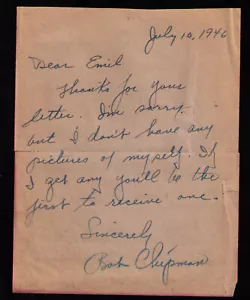 July 10, 1946
Dear Emil
Thanks for your
letter. I'm sorry.
but I don't have any
pictures of myself. If
I get any you'll be the
first to receive one.
Sincerely
Bob Chipman